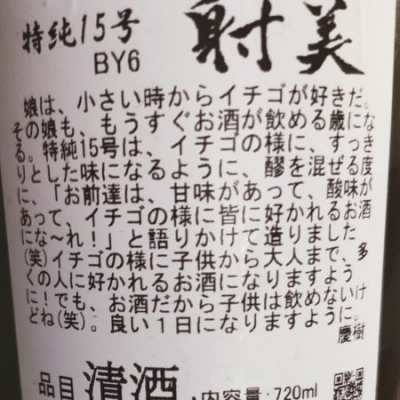 特純15号
BY6
射美
娘は、小さい時からイチゴが好きだ。
その娘も、もうすぐお酒が飲める歳にな
る。特純15号は、イチゴの様に、すっき
りとした味になるように、醪を混ぜる度
に、「お前達は、甘味があって、酸味が
あって、イチゴの様に皆に好かれるお酒
にな〜れ！」と語りかけて造りました
(笑)イチゴの様に子供から大人まで、多
くの人に好かれるお酒になりますよう
に！でも、お酒だから子供は飲めないけ
どね(笑)。良い１日になりますように。
慶樹
品目 清酒・内容量:720ml